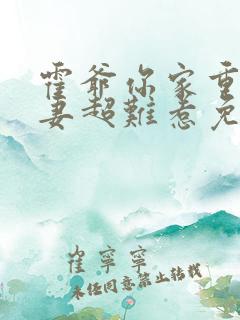 霍爷你家重
妻超难惹免
崔宁宁
未经同意禁止转载